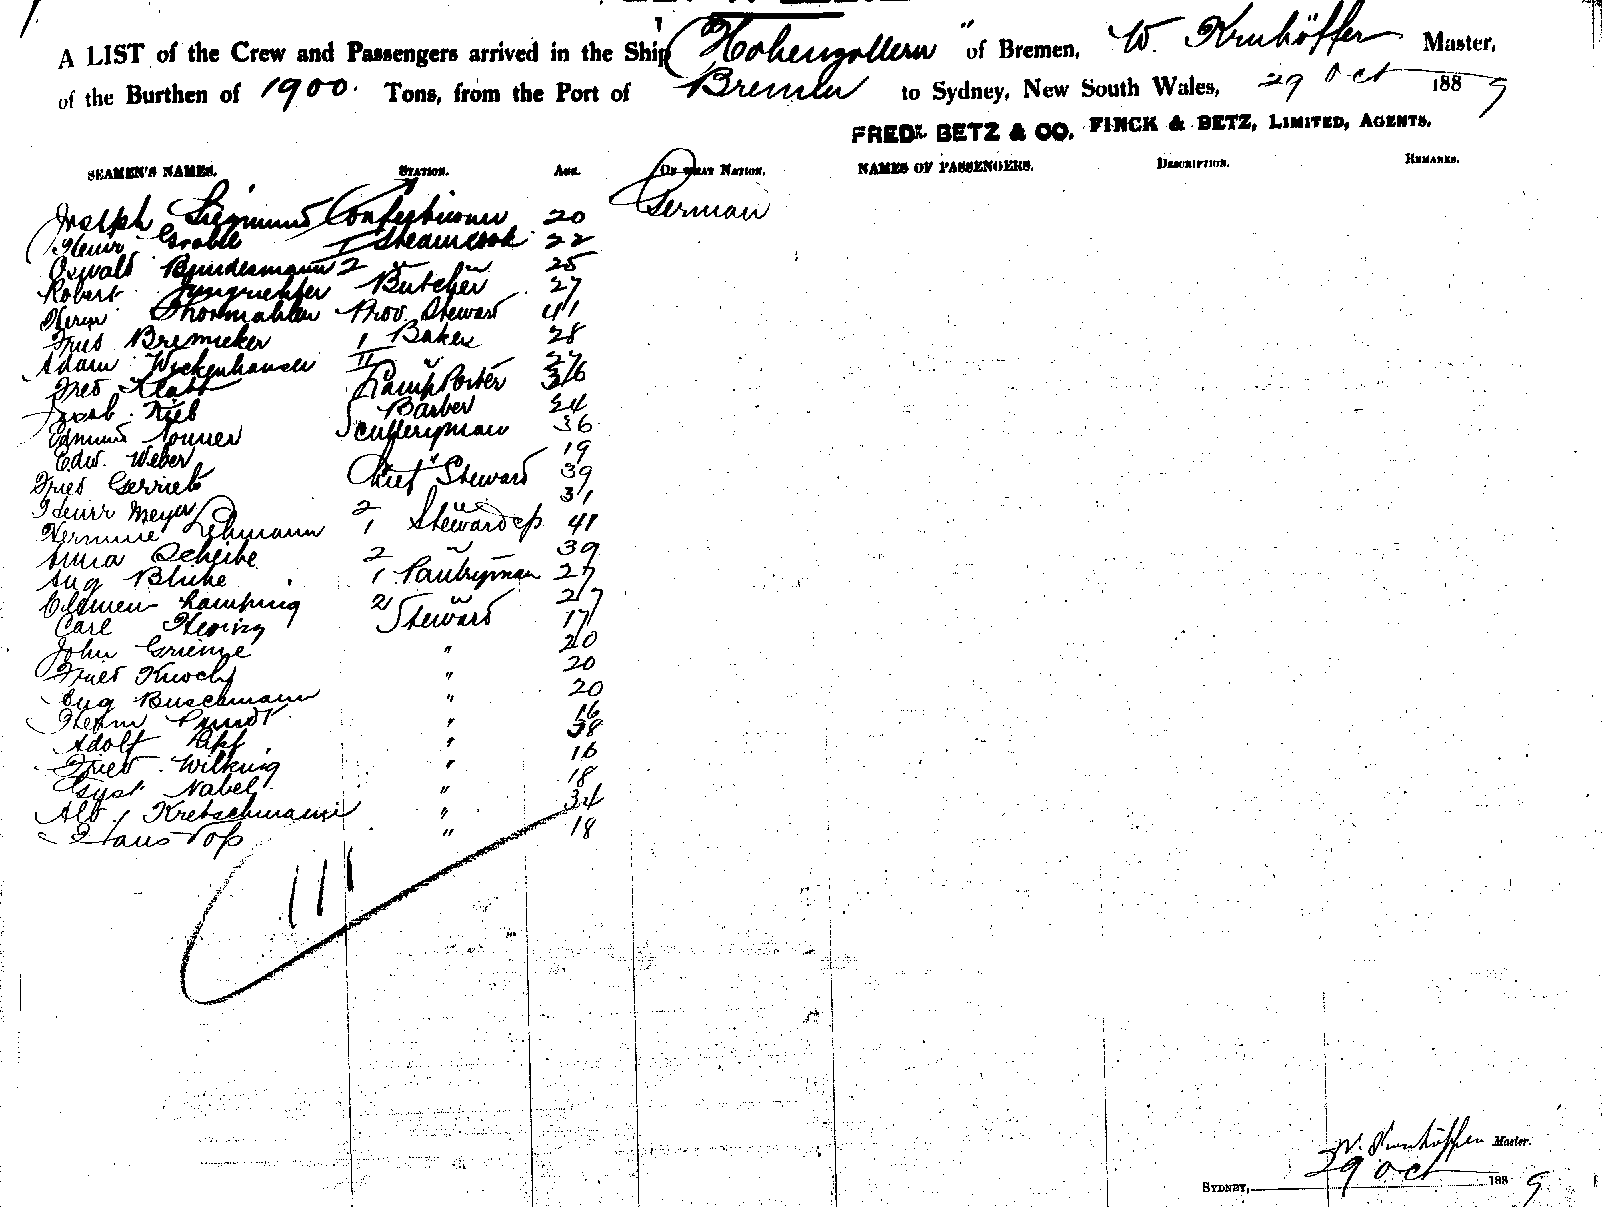 A LIST of the Crew and Passengers arrived in the Ship "Hohenzollern" of Bremen, W. Kruhöffer Master,
of the Burthen of 1900. Tons, from the Port of Bremen to Sydney, New South Wales, 29 Oct 1889
FREDK. BETZ & CO. FINCK & BETZ, LIMITED, AGENTS.
SEAMEN'S NAMES. STATION. AGE. OF WHAT NATION. NAMES OF PASSENGERS. DESCRIPTION. REMARKS.
Joseph Siegmund Confectioner 20 German
Heinr Grothe 1 Steamcook 22
Oswald Bundesmann 2 " 25
Robert Butcher 27
Herm Thormahlen Prov. Steward 41
Fried Bremicker 1 Baker 28
Adam Wickenhauser II " 27
Fred Klatt Lamp Porter 36
Jacob Barber 24
Edmund Nonner Sculleryman 36
Edw. Weber " 19
Fried Gerriets Chief Steward 39
Heinr Meyer 2 " 31
Hermine Lehmann 1 Stewardess 41
Anna Scheibe 2 " 39
Aug 1 Pantryman 27
Clemen Lamping 2 " 27
Carl Hering Steward 17
John Grienze " 20
Fried Knoche " 20
Eug Buschmann " 20
Herm " 16
Adolf " 38
Fried Wilking " 16
Gust Nabel " 18
Alb. Kretschmann " 34
Hans Voss " 18
111
W. Kruhöffer Master.
SYDNEY, 29 Oct 1889